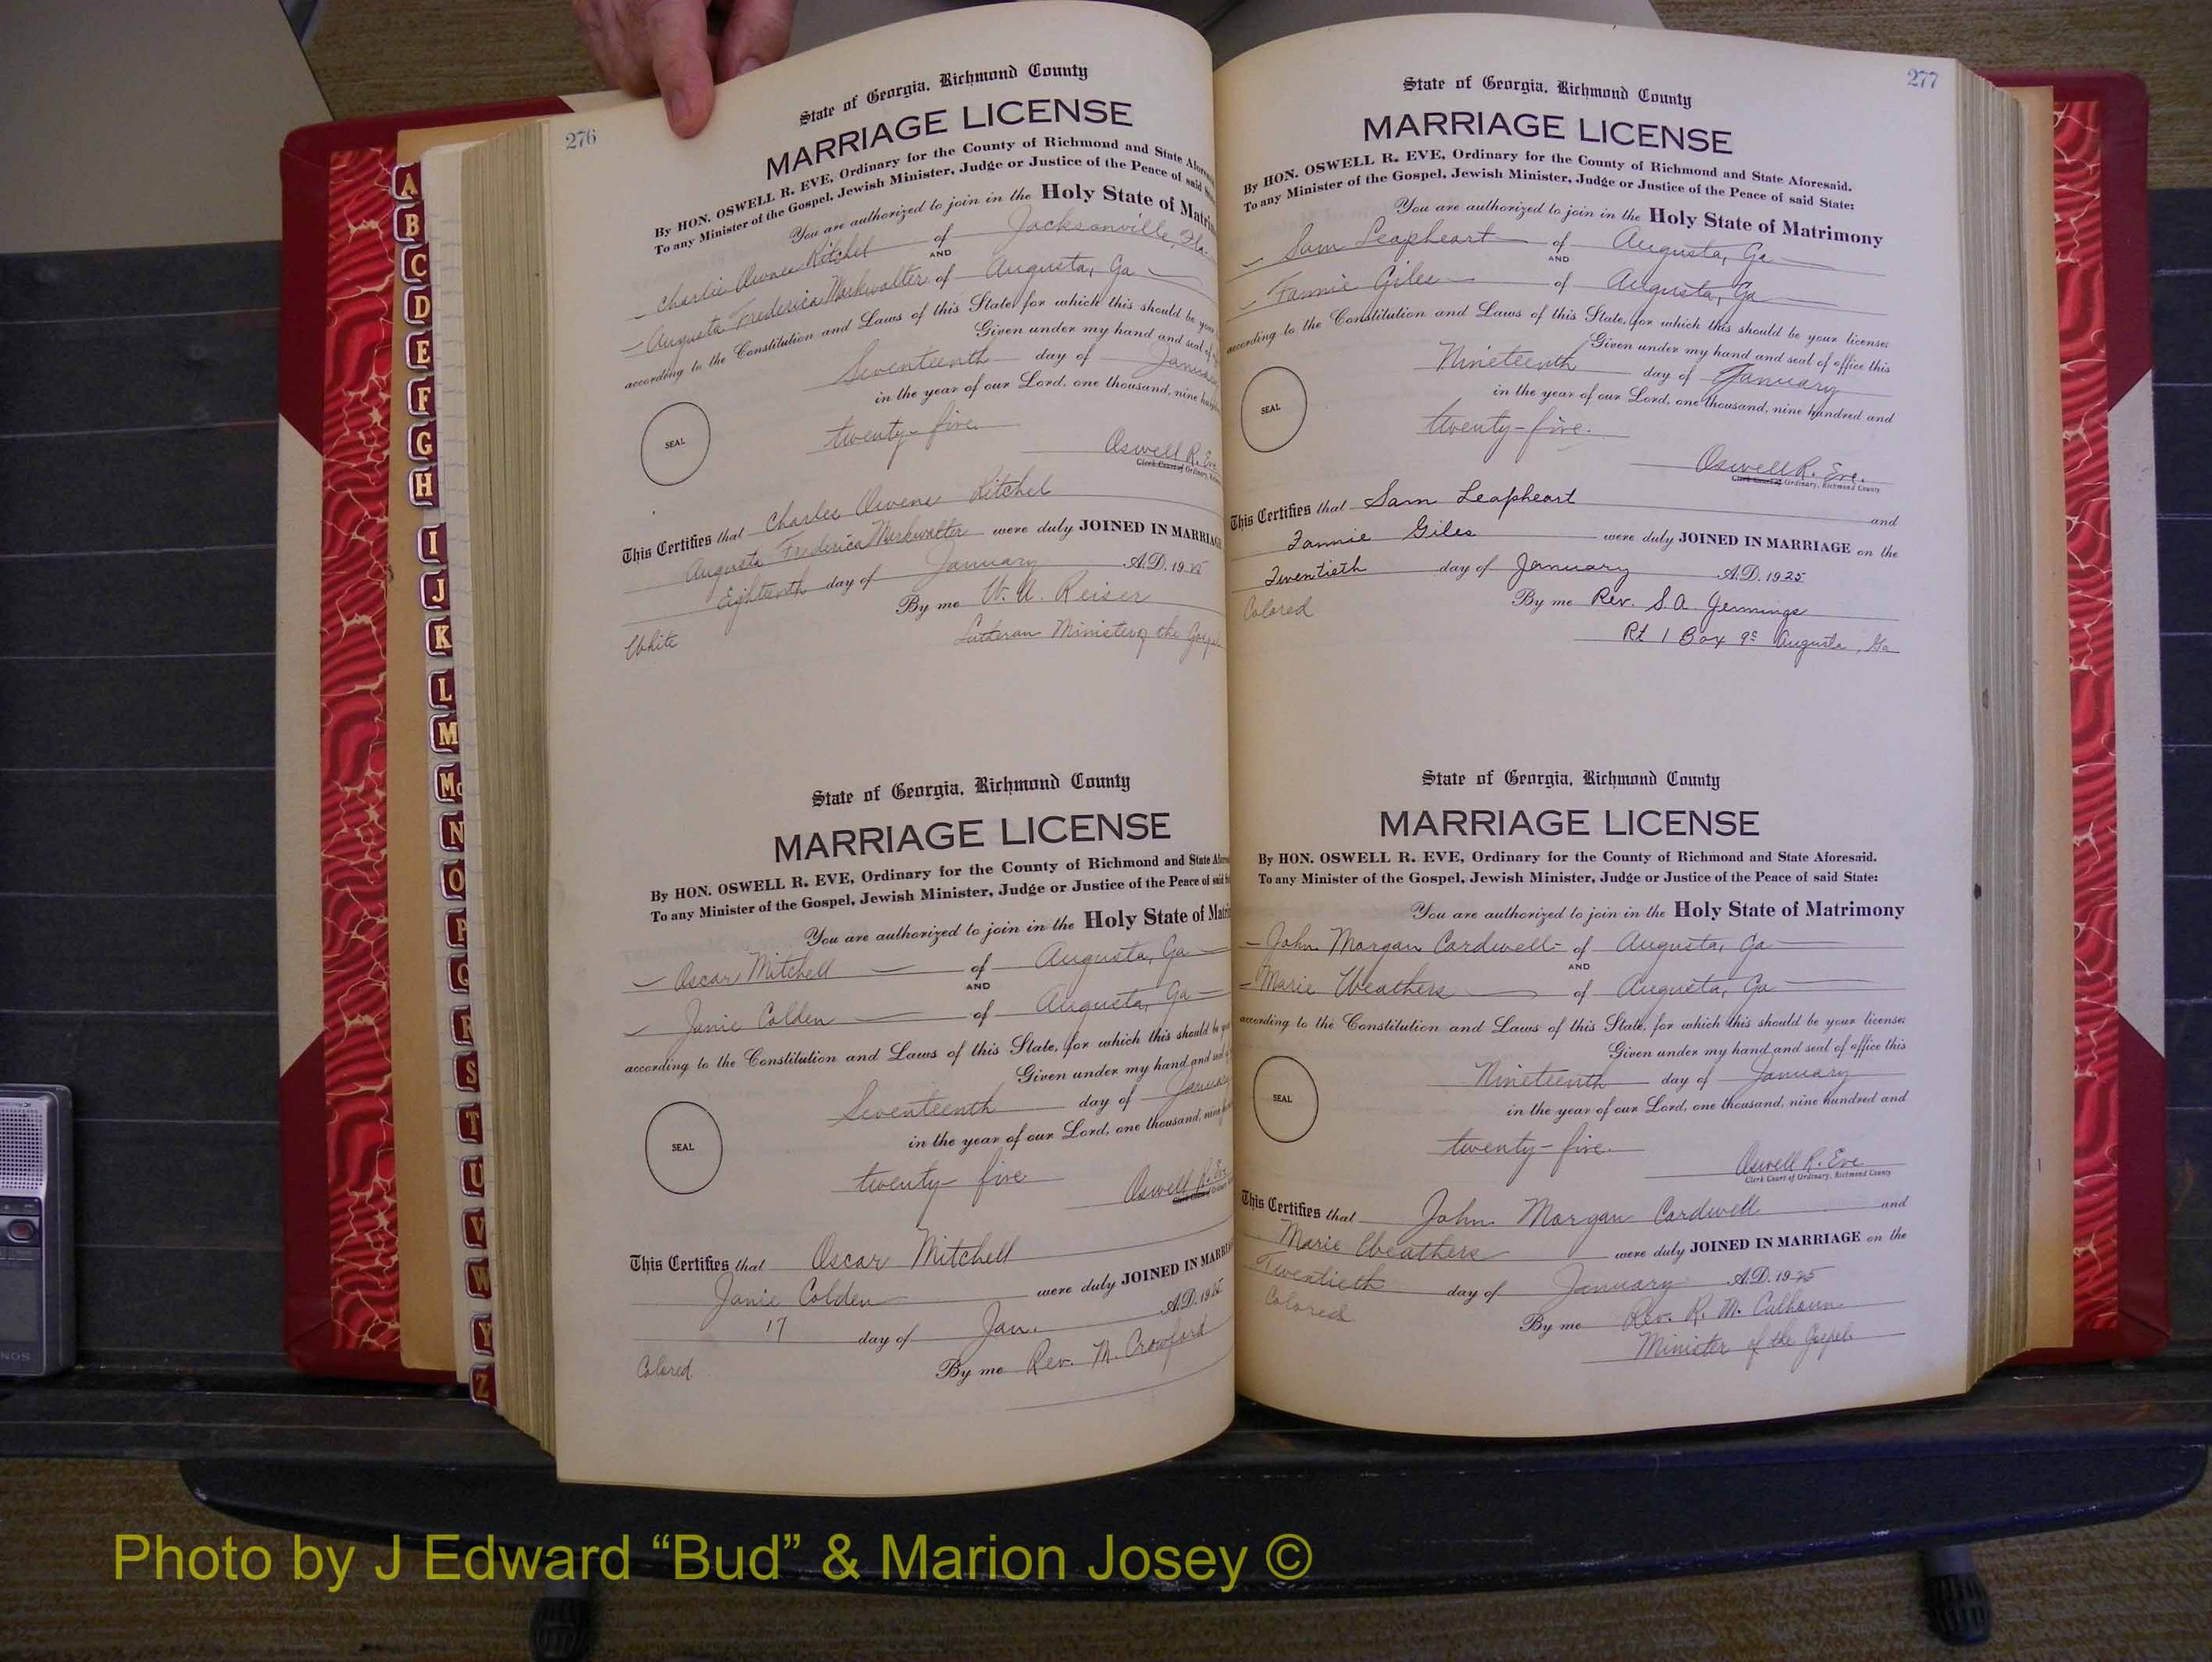 276
State of Georgia, Richmond County
MARRIAGE LICENSE
By HON. OSWELL R. EVE, Ordinary for the County of Richmond and State Afores
To any Minister of the Gospel, Jewish Minister, Judge or Justice of the Peace of said St
You are authorized to join in the Holy State of Matri
Charlie Owens Ritchel of Jacksonville, Fla.
AND
Augusta Frederica Markwalter of Augusta, Ga
according to the Constitution and Laws of this State, for which this should be your
Given under my hand and seal of
Seventeenth day of January
in the year of our Lord, one thousand, nine hund
SEAL
twenty-five.
Oswell R. Eve
Clerk Court of Ordinary,
This Certifies that Charlie Owens Ritchel
Augusta Frederica Markwalter were duly JOINED IN MARRIAGE
Eighteenth day of January A.D. 1925
By me W. A. Reiser
Lutheran Minister of the Gospel
White
State of Georgia, Richmond County
MARRIAGE LICENSE
By HON. OSWELL R. EVE, Ordinary for the County of Richmond and State Afores
To any Minister of the Gospel, Jewish Minister, Judge or Justice of the Peace of said St
You are authorized to join in the Holy State of Matri
Oscar Mitchell of Augusta, Ga
AND
Janie Colden of Augusta, Ga
according to the Constitution and Laws of this State, for which this should be you
Given under my hand and seal
Seventeenth day of January
in the year of our Lord, one thousand, nine
SEAL
twenty-five
Oswell R. Eve
Clerk Court of Ordinary
This Certifies that Oscar Mitchell
Janie Colden were duly JOINED IN MARRI
17 day of Jan. A.D. 1925
Colored
By me Rev. M. Crawford
277
State of Georgia, Richmond County
MARRIAGE LICENSE
By HON. OSWELL R. EVE, Ordinary for the County of Richmond and State Aforesaid.
To any Minister of the Gospel, Jewish Minister, Judge or Justice of the Peace of said State:
You are authorized to join in the Holy State of Matrimony
Sam Leapheart of Augusta, Ga
AND
Fannie Giles of Augusta, Ga
according to the Constitution and Laws of this State, for which this should be your license:
Given under my hand and seal of office this
Nineteenth day of January
in the year of our Lord, one thousand, nine hundred and
SEAL
twenty-five.
Oswell R. Eve.
Clerk Court of Ordinary, Richmond County
This Certifies that Sam Leapheart and
Fannie Giles were duly JOINED IN MARRIAGE on the
Twentieth day of January A.D. 1925
Colored
By me Rev. S. A. Jennings
Rt 1 Box 95 Augusta, Ga
State of Georgia, Richmond County
MARRIAGE LICENSE
By HON. OSWELL R. EVE, Ordinary for the County of Richmond and State Aforesaid.
To any Minister of the Gospel, Jewish Minister, Judge or Justice of the Peace of said State:
You are authorized to join in the Holy State of Matrimony
John Morgan Cardwell of Augusta, Ga
AND
Marie Weathers of Augusta, Ga
according to the Constitution and Laws of this State, for which this should be your license:
Given under my hand and seal of office this
Nineteenth day of January
in the year of our Lord, one thousand, nine hundred and
SEAL
twenty-five.
Oswell R. Eve
Clerk Court of Ordinary, Richmond County
This Certifies that John Morgan Cardwell and
Marie Weathers were duly JOINED IN MARRIAGE on the
Twentieth day of January A.D. 1925
Colored
By me Rev. R. M. Calhoun
Minister of the Gospel
A
B
C
D
E
F
G
H
I
J
K
L
M
Mc
N
O
P
Q
R
S
T
U
V
W
Y
Z
Photo by J Edward “Bud” & Marion Josey ©